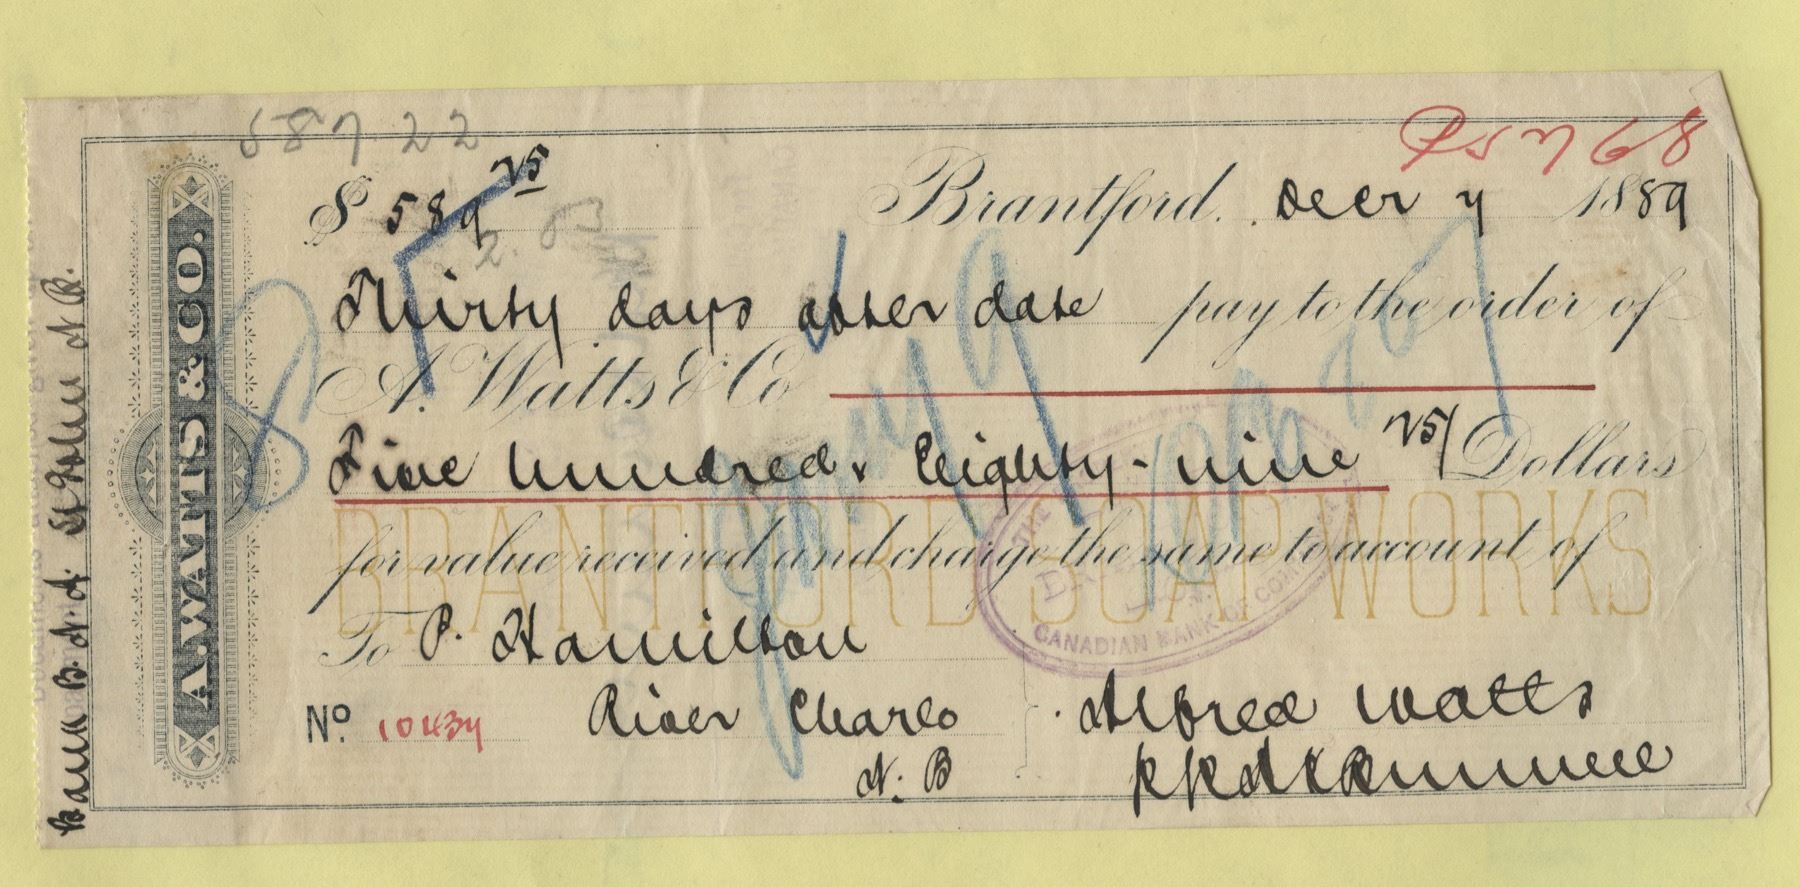 58722
25768
$ 589 25
Brantford. Decr 7 1889
Thirty days after date pay to the order of
A. Watts & Co
Five hundred & Eighty-nine 25/ Dollars
for value received and charge the same to account of
BRANTFORD SOAP WORKS
To P. Hamilton
River Charlo
N.B
No. 10434
Alfred Watts
A. WATTS & CO.
Bank B.N.A. St John N.B.
THE
CANADIAN BANK OF COMMERCE